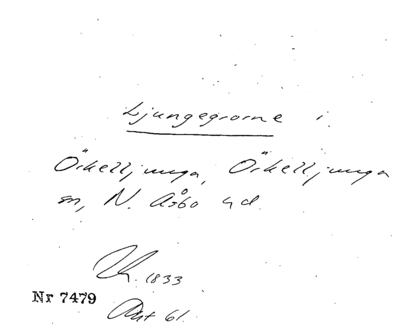 Ljungegrorne i
Örkelljunga, Örkelljunga
sn, N. Åsbo hd.
1833
Nr 7479
Ant 61.